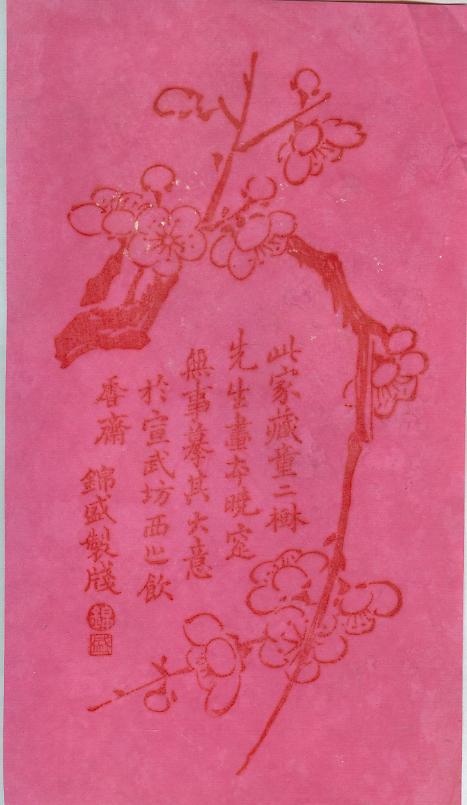 此家藏童二樹
先生畫本曉窓
無事摹其大意
於宣武坊西之飲
香齋
錦盛製牋
錦盛